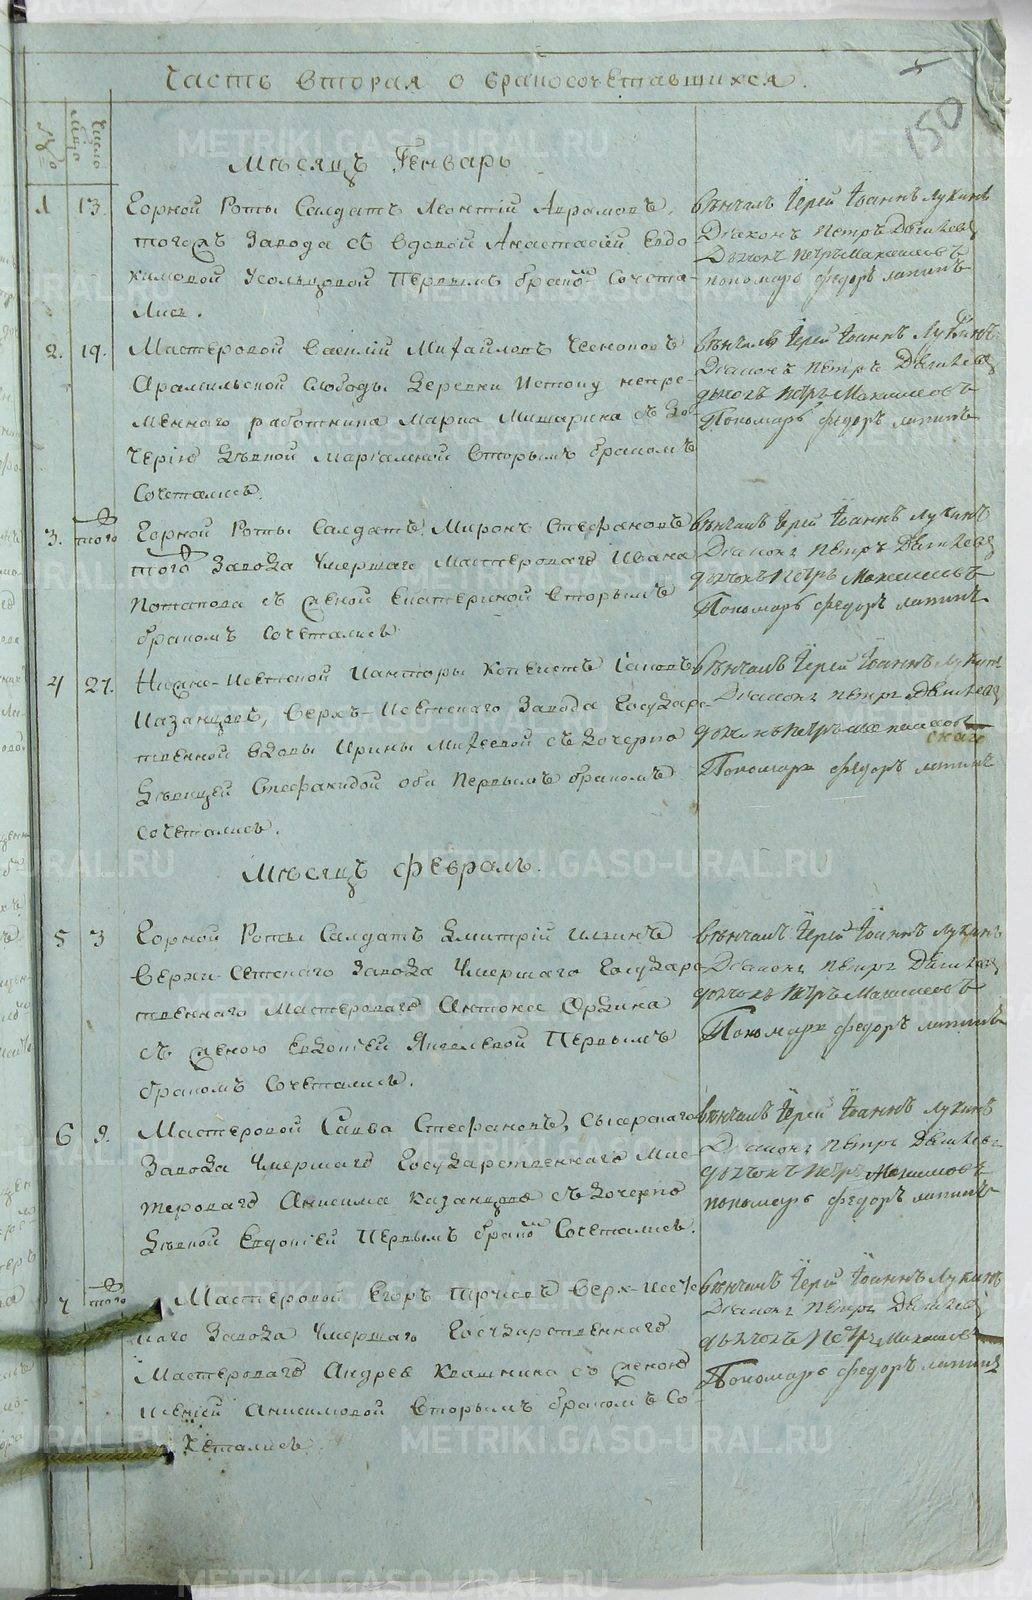 Часть вторая о бракосочетавшихся.
150
число
Мѣсяцъ Генварь
1 13. Горной Роты Салдатъ Леонтій Аврамовъ,
тогожъ Завода съ вдовой Анастасіей Евдо
кимовой Усольцовой Первымъ бракомъ Сочета-
лись.
вѣнчалъ Іерей Іоаннъ Лукинъ
Діаконъ Петръ
Дьячокъ Петръ Максимовъ
пономарь Федоръ Лапинъ
2. 19. Мастеровой Василій Михайловъ
Арамильской Слободы Деревни Истоку непре-
менного работника Марка Мишарина съ до-
черію дѣвкой Маркѣлной вторымъ бракомъ
Сочетались.
вѣнчалъ Іерей Іоаннъ Лукинъ
Діаконъ Петръ
дьячокъ Петръ Максимовъ
Пономарь Федоръ Лапинъ
3. того Горной Роты Салдатъ Миронъ Стефановъ
того Завода Умершаго Мастероваго Ивана
Потапова съ женой Екатериной вторымъ
бракомъ сочетались
вѣнчалъ Іерей Іоаннъ Лукинъ
Діаконъ Петръ
дьячокъ Петръ Максимовъ
Пономарь Федоръ Лапинъ
4 27. Исетской Канторы Копеистъ
Казанцовъ, Верхъ-Исетскаго Завода Государс-
твенной вдовы Ирины Михеевой съ дочерью
Дѣвицей оби Первымъ бракомъ
сочетались.
вѣнчалъ Іерей Іоаннъ Лукинъ
Діаконъ Петръ
дьячокъ Петръ
Пономарь Федоръ Лапинъ
Мѣсяцъ Февраль.
5 3 Горной Роты Салдатъ Дмитрій Ильинъ
Верхи-Сетскаго Завода Умершаго Государс-
твеннаго Мастероваго Антона
съ женою Евдокіей Яковлевой Первымъ
бракомъ Сочетались.
вѣнчалъ Іерей Іоаннъ Лукинъ
Діаконъ Петръ
дьячокъ Петръ Максимовъ
Пономарь Федоръ Лапинъ
6 9. Мастеровой Савва Стефановъ, Сысерскаго
Завода Умершаго Государственнаго Мас-
тероваго Анисима Казанцова съ дочерью
Дѣвкой Евдокіей Первымъ бракомъ Сочетались.
вѣнчалъ Іерей Іоаннъ Лукинъ
Діаконъ Петръ
дьячокъ Петръ Максимовъ
пономарь Федоръ Лапинъ
7 того Мастеровой Егоръ Верх-Исетс-
каго Завода Умершаго Государственнаго
Мастероваго Андрея Квашнина съ женою
Ксеніей Анисимовой вторымъ бракомъ Со-
четались.
вѣнчалъ Іерей Іоаннъ Лукинъ
Діаконъ Петръ
дьячокъ Петръ Максимовъ
Пономарь Федоръ Лапинъ
METRIKI.GASO-URAL.RU